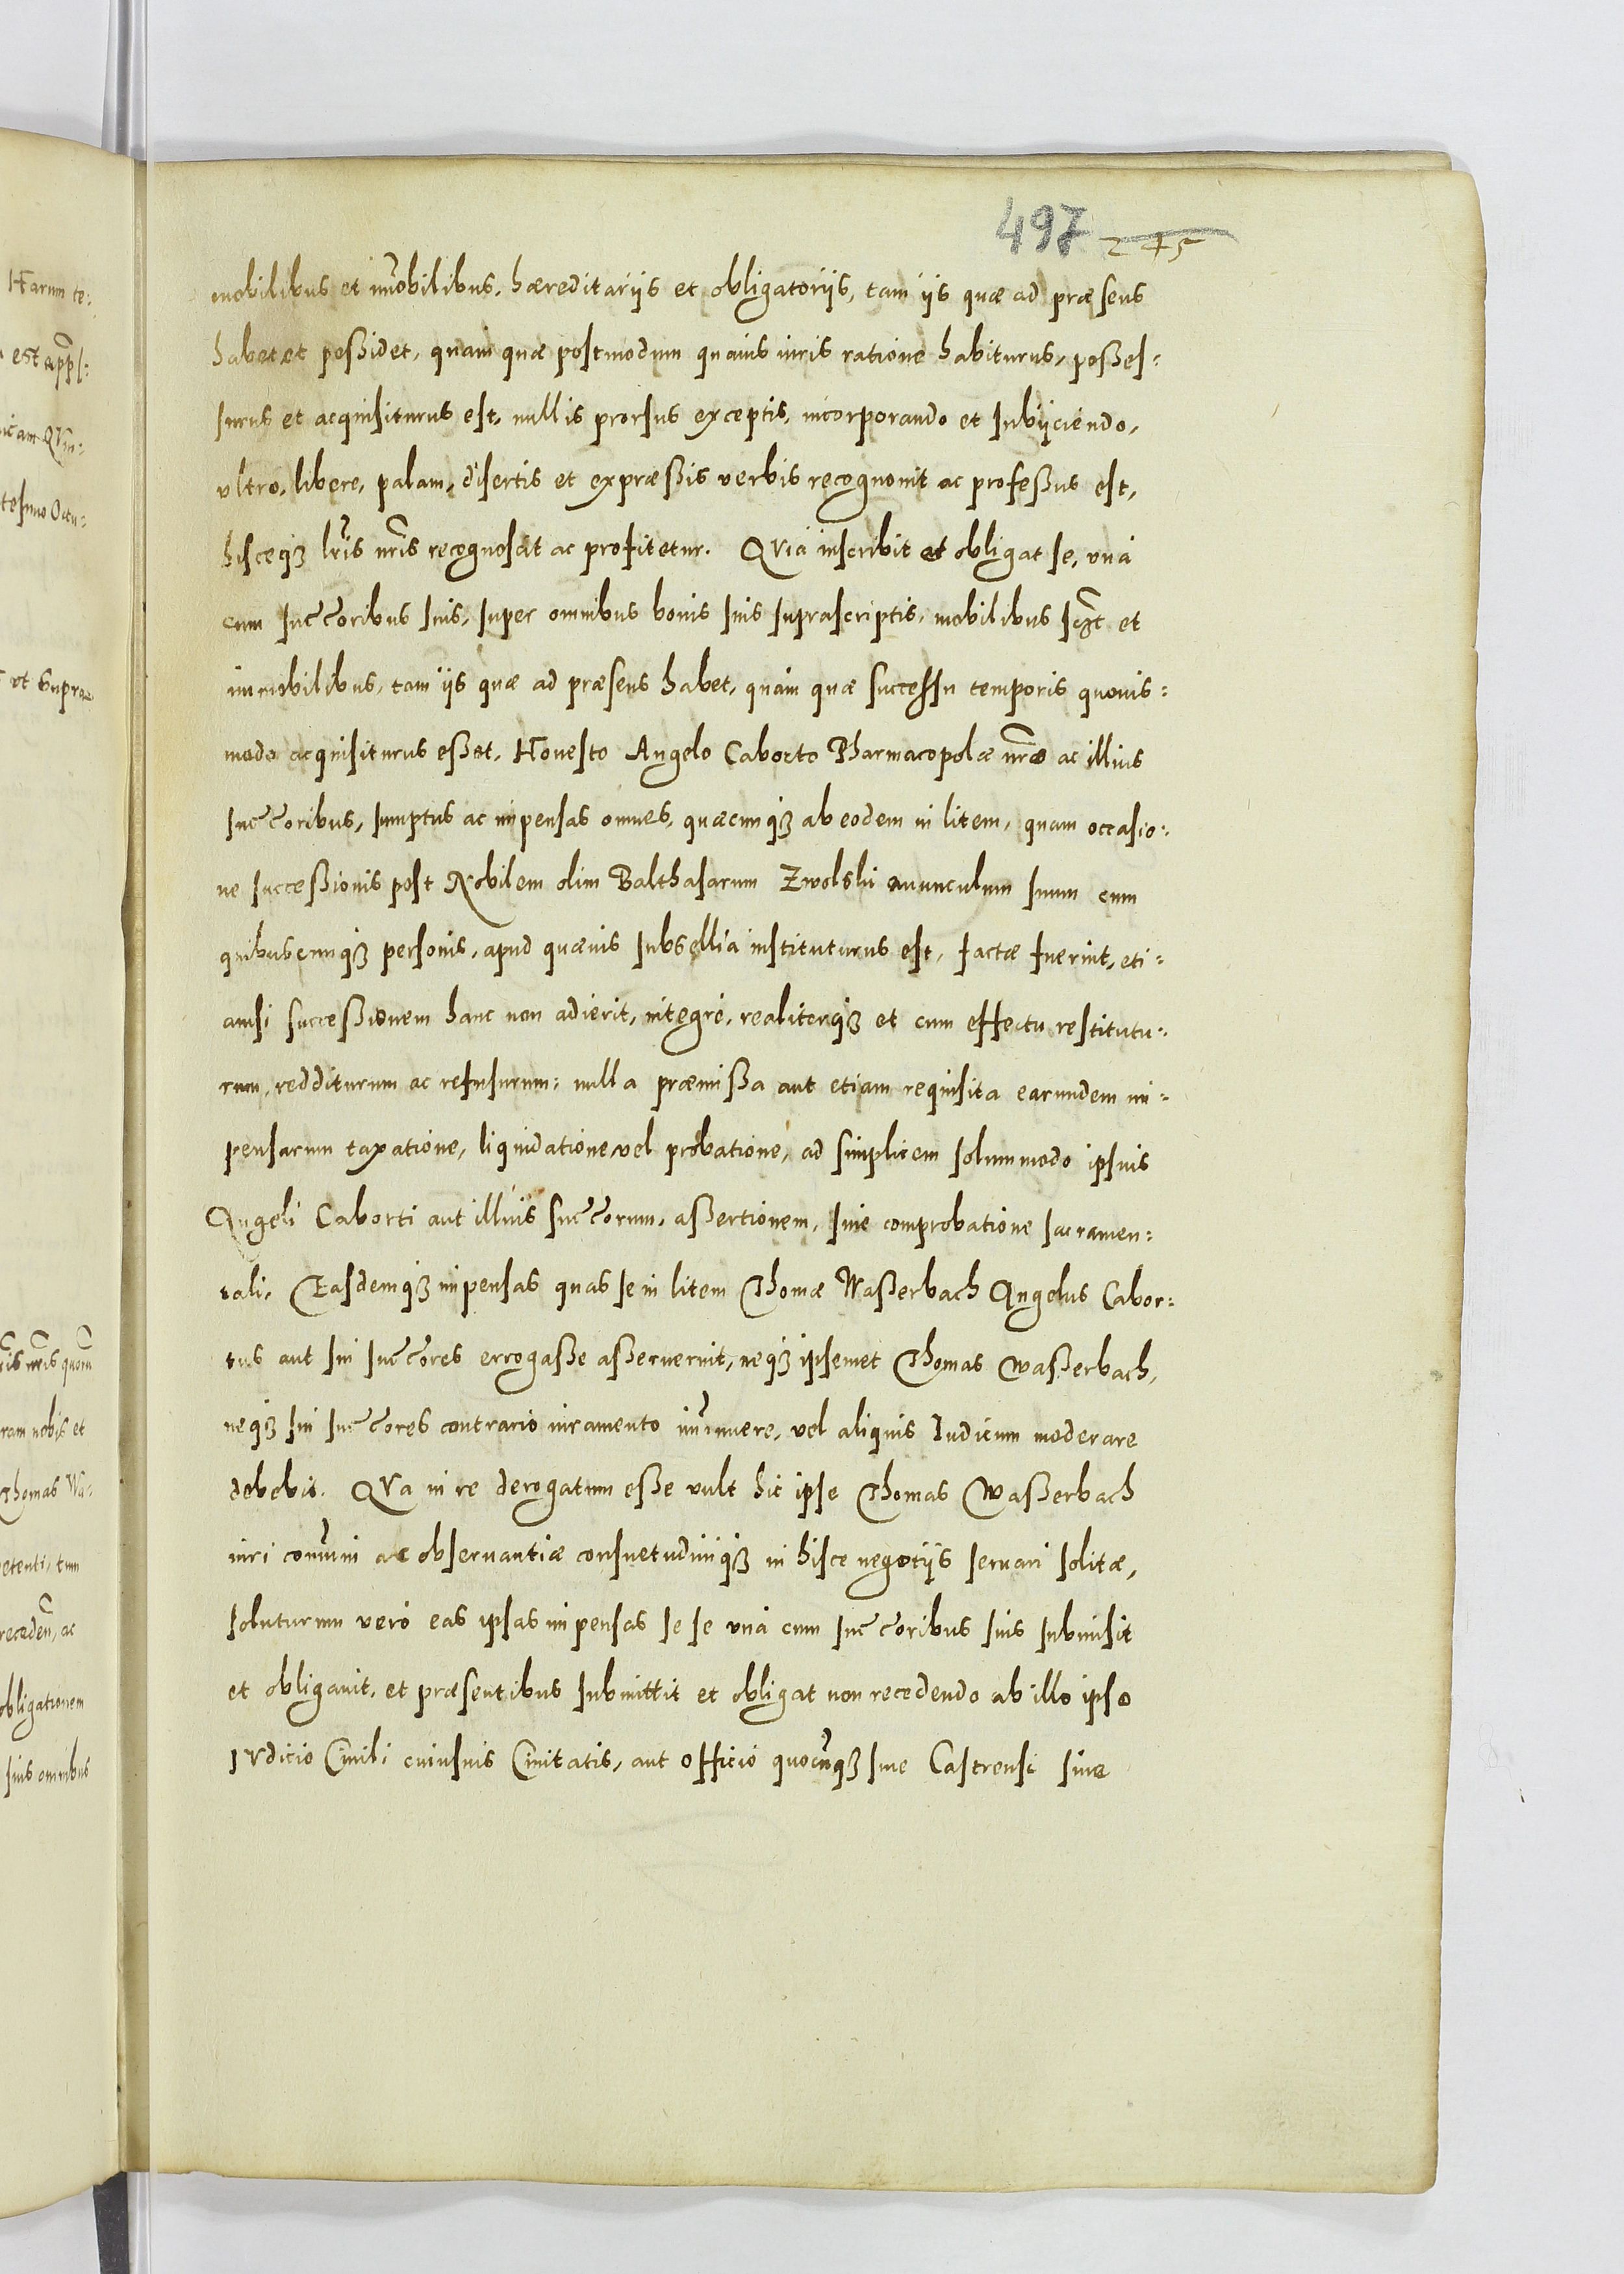 497 245
mobilibus et im̃obilibus, hæreditarijs et obligatorijs, tam ijs quæ ad præsens
habet et poßidet, quam quæ postmodum quauis iuris ratione habiturus, poßes=
surus et acquisiturus est, nullis prorsus exceptis, incorporando et subijciendo,
vltro, libere, palam, disertis et expræßis verbis recognouit ac profeßus est,
hisceqꝫ lr̃is nr̃is recognoscit ac profitetur. QVia inscribit et obligat se, vnà
cum succ̃oribus suis, super omnibus bonis suis suprascriptis, mobilibus sc̃t et
immobilibus, tam ijs quæ ad præsens habet, quàm quæ successu temporis quouis=
modo acquisiturus eßet, Honesto Angelo Caborto Pharmacopolæ nr̃o ac illius
succ̃oribus, sumptus ac impensas omnes, quæcunqꝫ ab eodem in litem, quam occasio=
ne succeßionis post Nobilem olim Balthasarum Zwolski auunculum suum cum
quibuscunqꝫ personis, apud quæuis subsellia instituturus est, factæ fuerint, eti=
amsi succeßionem hanc non adierit, integrè, realiterqꝫ et cum effectu restitutu=
rum, redditurum ac refusurum: nulla præmißa aut etiam requisita earundem im=
pensarum taxatione, liquidatione vel probatione, ad simplicem solummodo ipsius
Angeli Caborti aut illius succ̃orum, aßertionem, sine comprobatione sacramen=
tali. Easdemqꝫ impensas quas se in litem Thomæ Waßerbach Angelus Cabor=
tus aut sui succ̃ores errogaße aßeruerint, neqꝫ ipsemet Thomas Waßerbach,
neqꝫ sui succ̃ores contrario iuramento im̃inuere, vel aliquis Iudicum moderare
debebit. QVa in re derogatum eße vult hic ipse Thomas Waßerbach
iuri com̃uni ac obseruantiæ consuetudiniqꝫ in hisce negotijs seruari solitæ,
soluturum verò eas ipsas impensas se se vnà cum succ̃oribus suis submisit
et obligauit, et præsentibus submittit et obligat non recedendo ab illo ipso
IVdicio Ciuili cuiusuis Ciuitatis, aut officio quocũqꝫ siue Castrensi siue
Harum te=
est app̃s=
tesimo Octu=
vt Supra
nr̃is quom̃
ram nobis et
Thomas Wa=
petenti, tum
recedeñ, ac
obligationem
suis omnibus